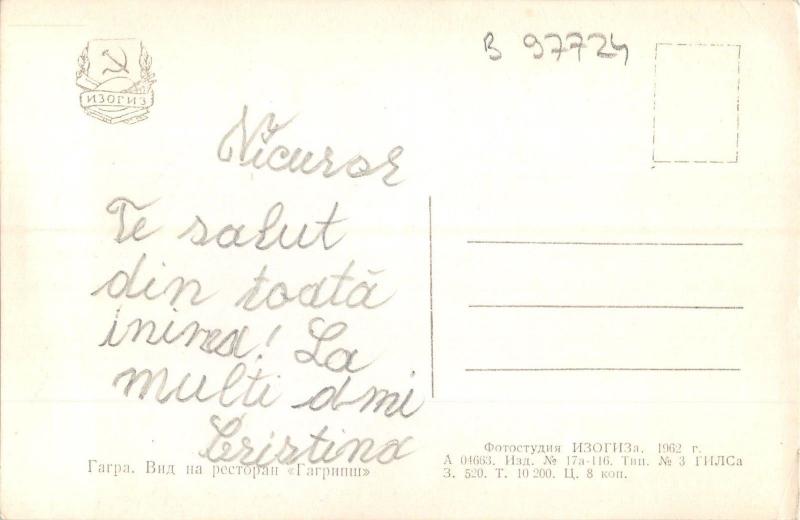 В 97724
ИЗОГИЗ
Nicusor
Te salut
din toată
inima! La
multi ani
Cristina
Гагра. Вид на ресторан «Гагрипш»
Фотостудия ИЗОГИЗа. 1962 г.
А 04663. Изд. № 17а-116. Тип. № 3 ГИЛСа
З. 520. Т. 10 200. Ц. 8 коп.